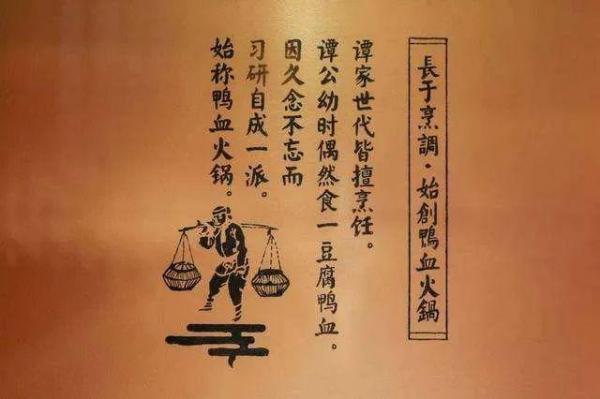 長于烹調·始創鴨血火鍋
谭家世代皆擅烹饪。
谭公幼时偶然食一豆腐鸭血。
因久念不忘而
习研自成一派。
始称鸭血火锅。